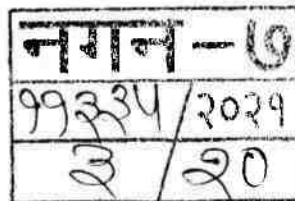 नगन - ७
११३३५ / २०२१
३ / २०